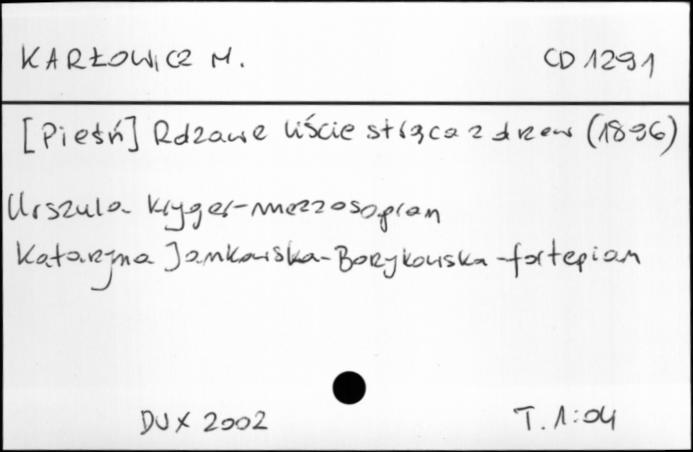 KARŁOWICZ M. CD 1291
[Pieśń] Rdzawe liście strząca z drzew (1896)
Urszula Kryger-mezzosopran
Katarzyna Jankowska-Borzykowska-fortepian
DUX 2002 T. 1:04